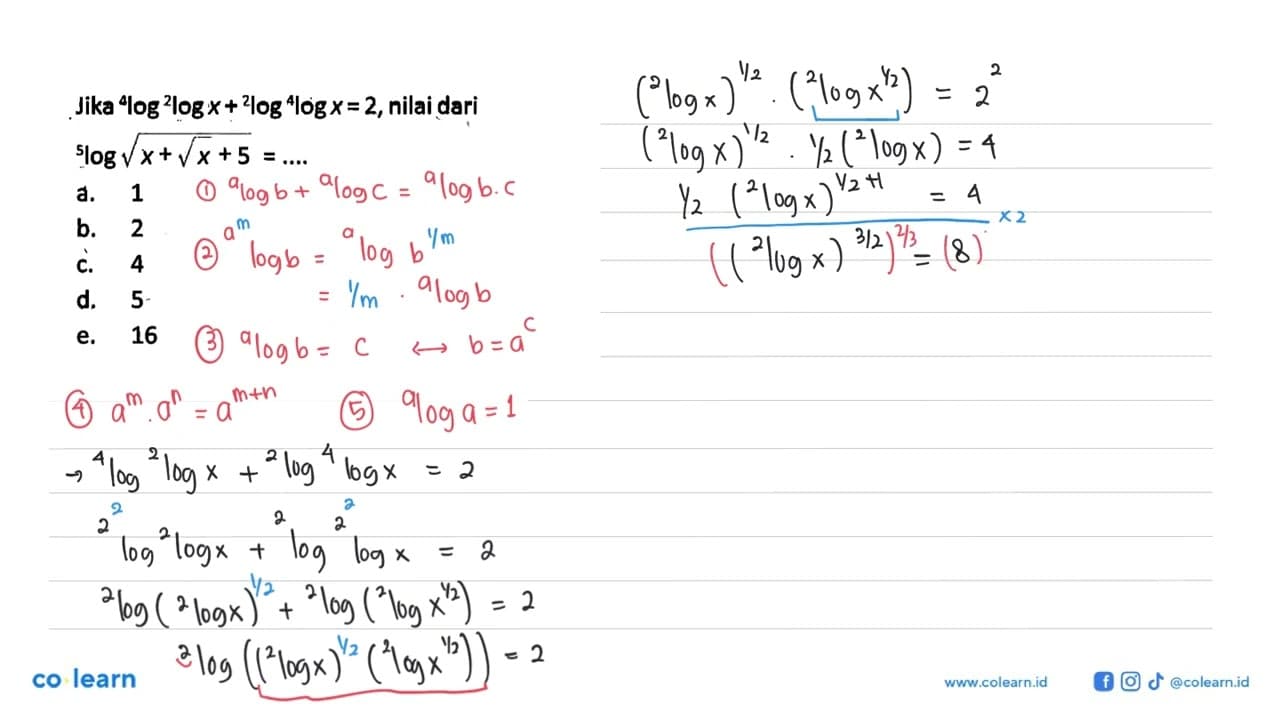 Jika ⁴log ²log x + ²log ⁴log x = 2, nilai dari
⁵log √(x + √x + 5) = ....
a. 1
b. 2
c. 4
d. 5
e. 16
① ᵃlog b + ᵃlog c = ᵃlog b.c
② ᵃ^ᵐ log b = ᵃlog b^(1/m)
= 1/m . ᵃlog b
③ ᵃlog b = c ↔ b = a^c
④ a^m . a^n = a^(m+n) ⑤ ᵃlog a = 1
→ ⁴log ²log x + ²log ⁴log x = 2
2^2 log ²log x + ²log 2^2 log x = 2
²log (²log x)^(1/2) + ²log (²log x^(1/2)) = 2
²log ((²log x)^(1/2) (²log x^(1/2))) = 2
(²log x)^(1/2) . (²log x^(1/2)) = 2^2
(²log x)^(1/2) . 1/2 (²log x) = 4
1/2 (²log x)^(1/2+1) = 4
x 2
((²log x)^(3/2))^(2/3) = (8)
co learn
www.colearn.id @colearn.id